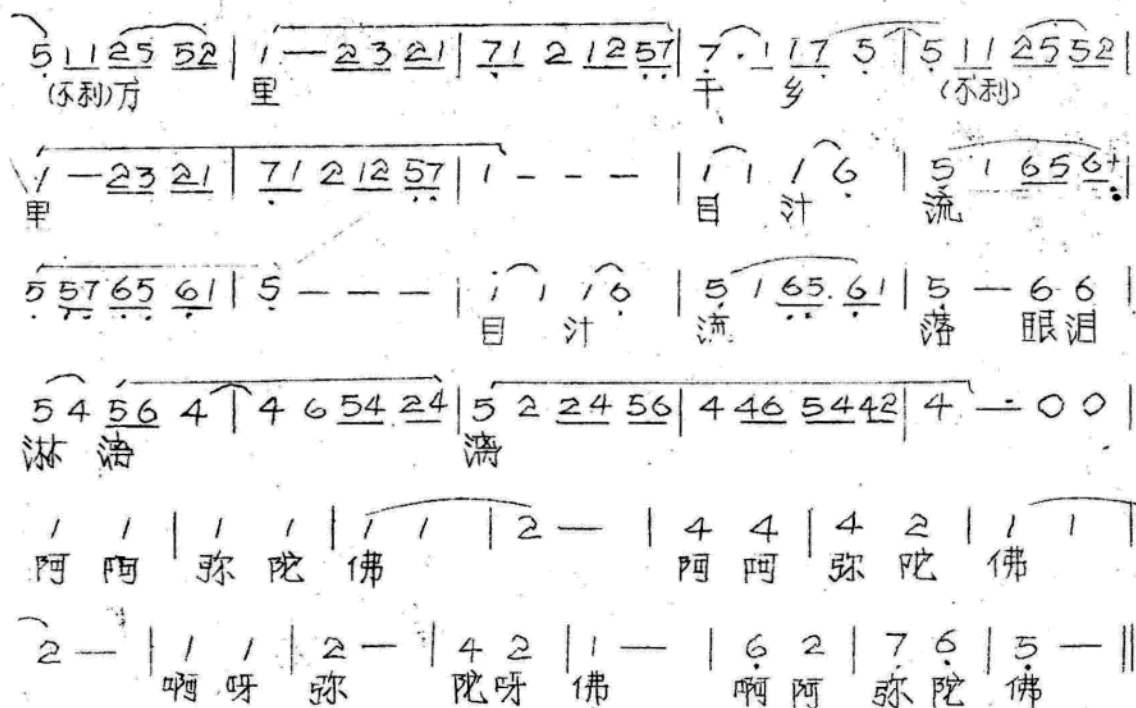 5 1 1 2 5 5 2 | 1 — 2 3 2 1 | 7 1 2 1 2 5 7 | 7 · 1 1 7 5 | 5 1 1 2 5 5 2 |
(不利)万 里 千 乡 (不利)
1 — 2 3 2 1 | 7 1 2 1 2 5 7 | 1 - - - | 1 1 1 6 | 5 1 6 5 6 |
里 目 汁 流
5 5 7 6 5 6 1 | 5 — — — | 1 1 1 6 | 5 1 6 5 . 6 1 | 5 — 6 6 |
目 汁 流 落 眼泪
5 4 5 6 4 | 4 6 5 4 2 4 | 5 2 2 4 5 6 | 4 4 6 5 4 4 2 | 4 — 0 0 |
淋 漓 漓
1 1 | 1 1 | 1 1 | 2 — | 4 4 | 4 2 | 1 1 |
阿 阿 弥 陀 佛 阿 阿 弥 陀 佛
2 — | 1 1 | 2 — | 4 2 | 1 — | 6 2 | 7 6 | 5 — ||
啊 呀 弥 陀 呀 佛 啊 阿 弥 陀 佛